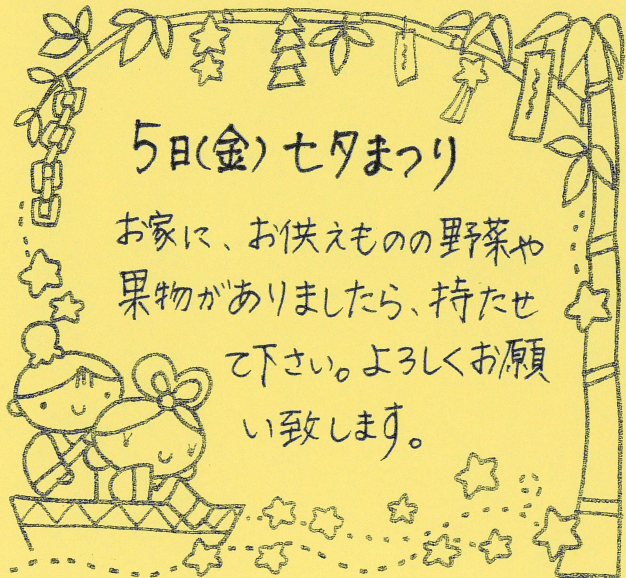 5日(金)七夕まつり
お家に、お供えものの野菜や
果物がありましたら、持たせ
て下さい。よろしくお願
い致します。